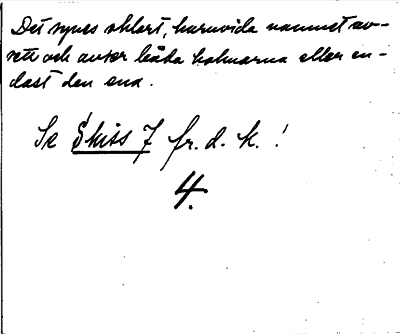 Det synes oklart, huruvida namnet av-
sett och avser båda holmarna eller en-
dast den ena.
Se Skiss 7 fr. d. k. !
4.